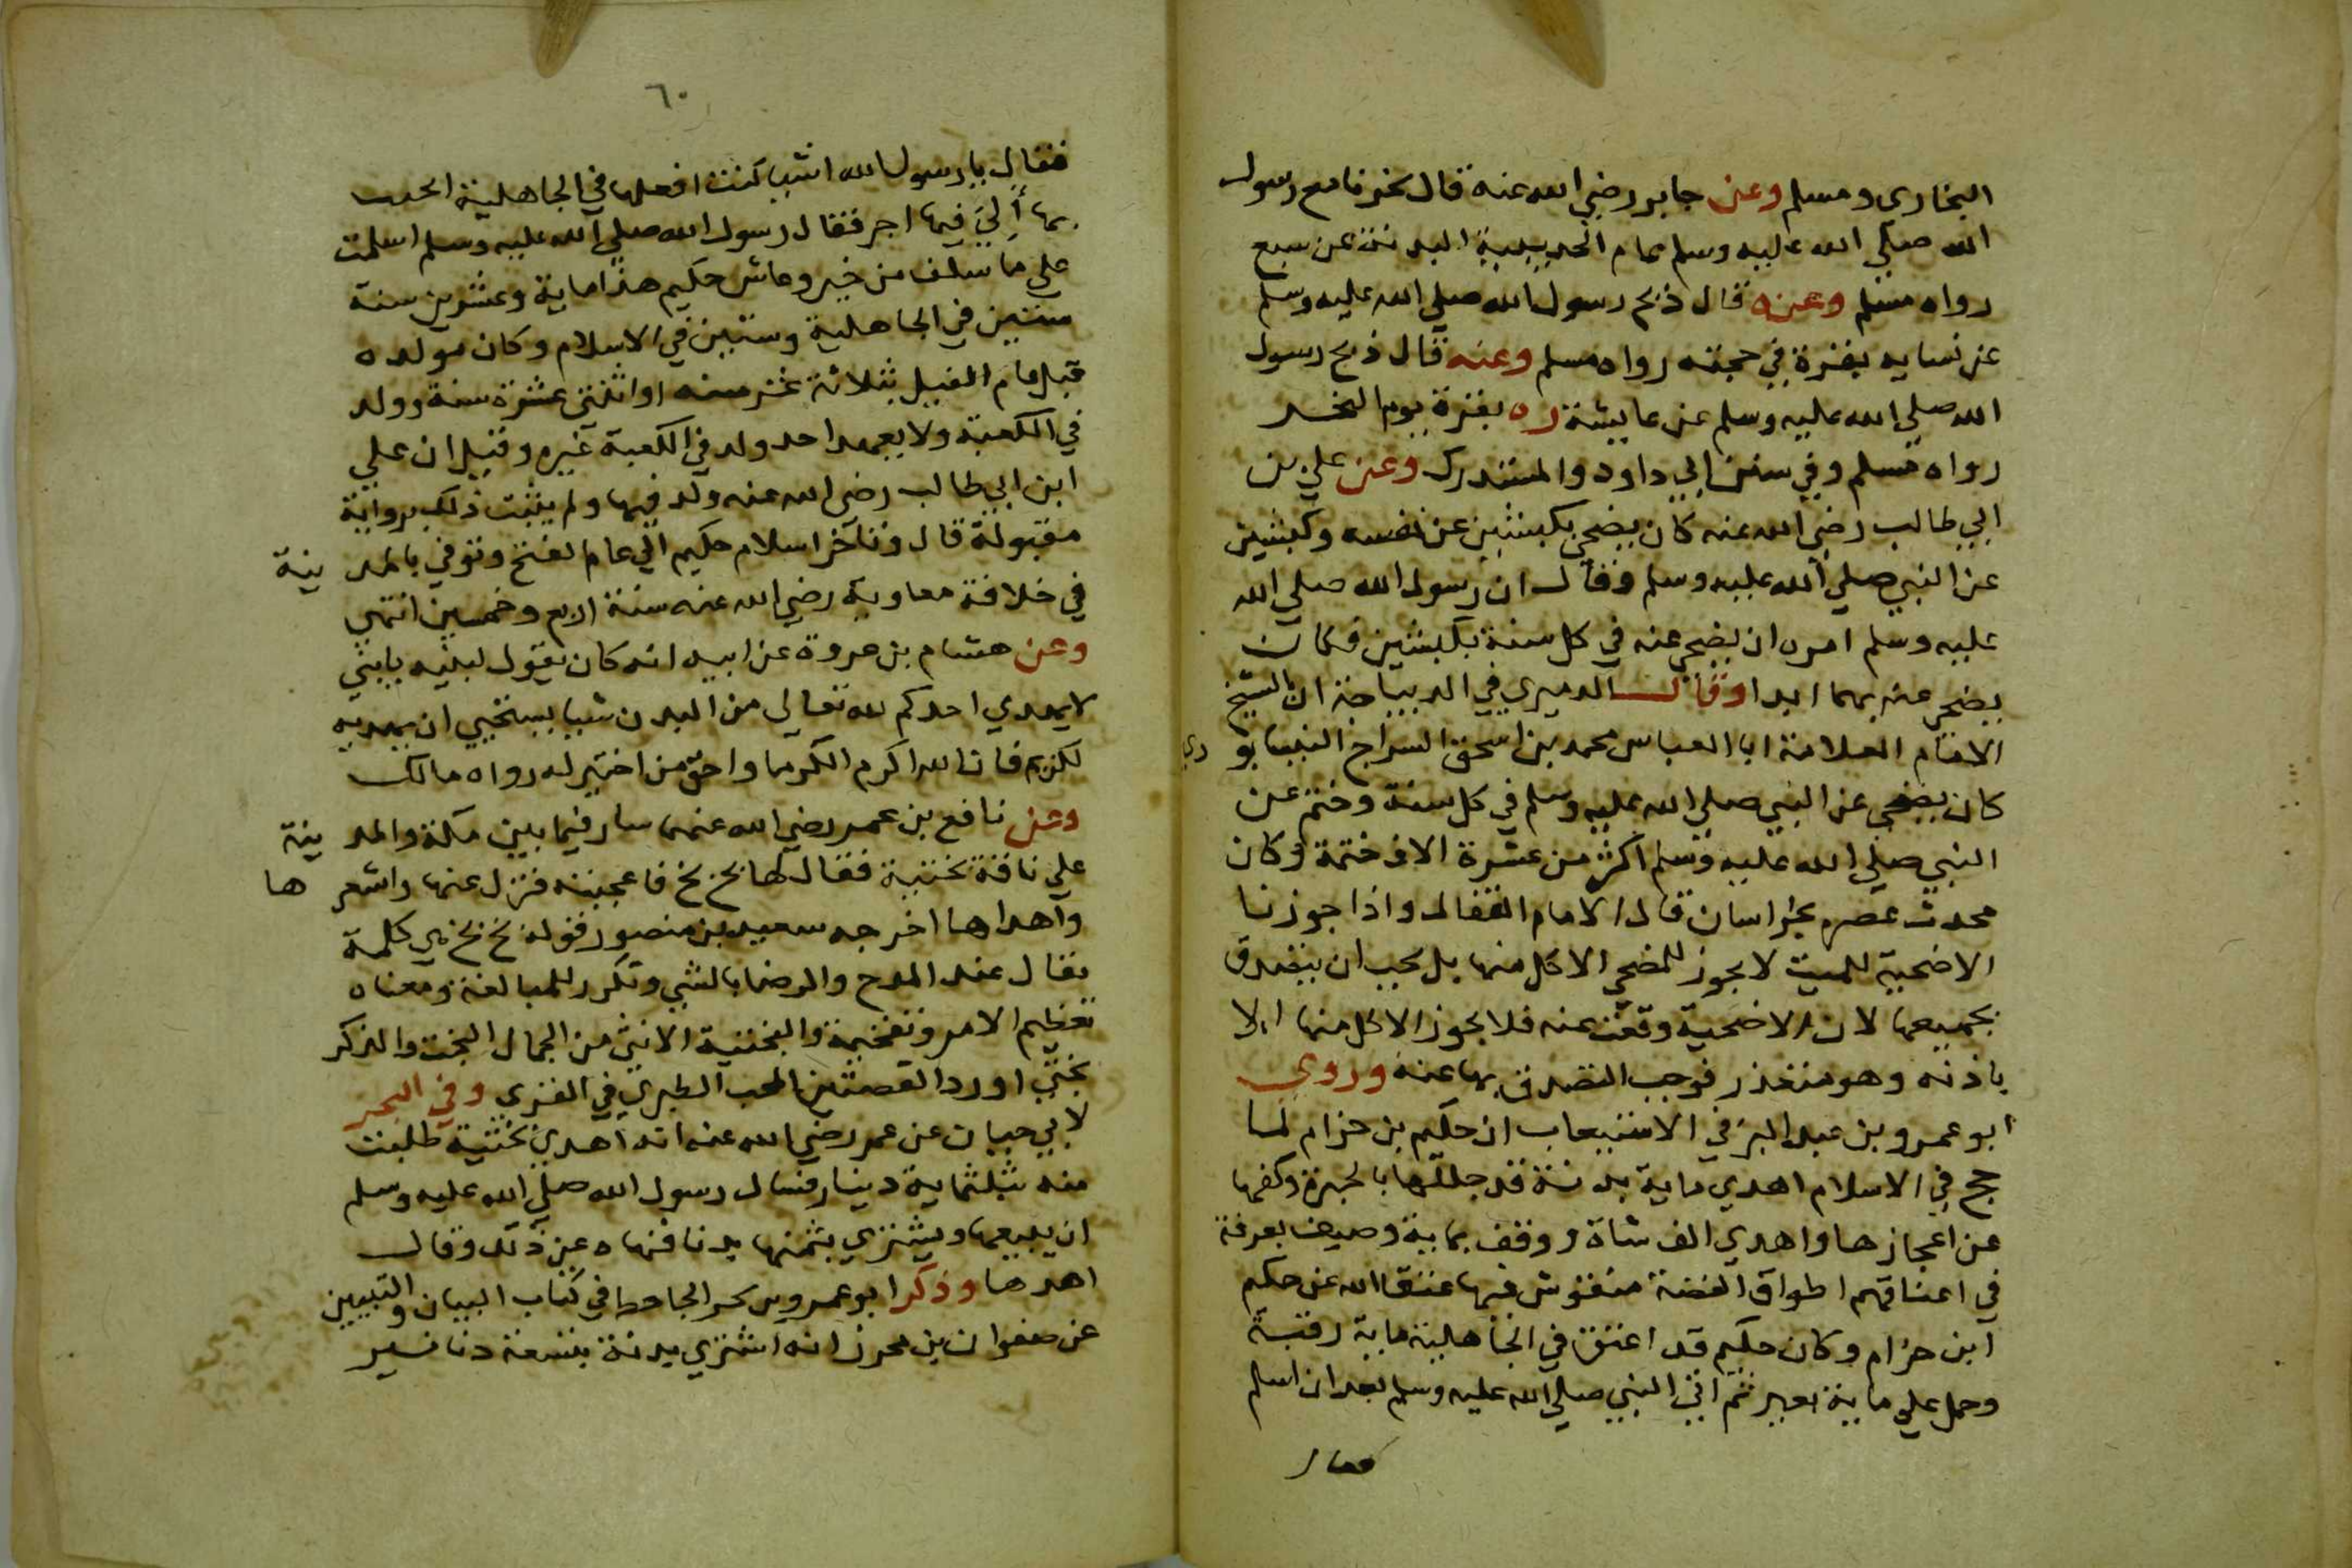 البخارى ومسلم وعن جابر رضي الله عنه قال نحرنا مع رسول
الله صلي الله عليه وسلم عام الحديبية البدنة عن سبع
رواه مسلم وعنه قال ذبح رسول الله صلي الله عليه وسلم
عن نسايه بقرة في حجته رواه مسلم وعنه قال ذبح رسول
الله صلي الله عليه وسلم عن عايشة ره بقرة يوم النحر
رواه مسلم وفي سنن ابي داود والمستدرك وعن علي بن
ابي طالب رضي الله عنه كان يضحي بكبشين عن نفسه وكبشين
عن النبي صلي الله عليه وسلم وقال ان رسول الله صلي الله
عليه وسلم امره ان يضحي عنه في كل سنة بكبشين فكان
يضحي عنه بهما ابدا وقال الدميري في الديباجة ان الشيخ
الامام العلامة ابا العباس محمد بن اسحق السراج النيسابو ري
كان يضحي عن النبي صلي الله عليه وسلم في كل سنة وختم عن
النبي صلي الله عليه وسلم اكثر من عشرة الاف ختمة وكان
محدث عصره بخراسان قال الامام القفال واذا جوزنا
الاضحية للميت لا يجوز للمضحي الاكل منها بل يجب ان يتصدق
بجميعها لان الاضحية وقعت عنه فلا يجوز الاكل منها الا
باذنه وهو متعذر فوجب التصدق بها عنه وروي
ابو عمرو بن عبد البر في الاستيعاب ان حكيم بن حزام لما
حج في الاسلام اهدي ماية بدنة قد جللها بالحبرة وكفها
عن اعجازها واهدي الف شاة ووقف بماية وصيف بعرفة
في اعناقهم اطواق الفضة منقوش فيها عتقا الله عن حكيم
ابن حزام وكان حكيم قد اعتق في الجاهلية ماية رقبة
وحمل علي ماية بعير ثم اتي النبي صلي الله عليه وسلم بعد ان اسلم
فقال
٦٠
فقال يا رسول الله اشيا كنت افعلها في الجاهلية اتحنث
بها أَلِيَ فيها اجر فقال رسول الله صلي الله عليه وسلم اسلمت
علي ما سلف من خير وعاش حكيم هذا ماية وعشرين سنة
ستين في الجاهلية وستين في الاسلام وكان مولده
قبل عام الفيل بثلاثة عشر سنه او اثنتي عشرة سنة وولد
في الكعبة ولا يعهد احد ولد في الكعبة غيره وقيل ان علي
ابن ابي طالب رضي الله عنه ولد فيها ولم يثبت ذلك برواية
مقبولة قال وتأخر اسلام حكيم الي عام الفتح وتوفي بالمد ينة
في خلافة معاوية رضي الله عنه سنة اربع وخمسين انتهي
وعن هشام بن عروة عن ابيه انه كان يقول لبنيه يا بني
لا يهدي احدكم لله تعالي من البدن شيا يستحيي ان يهديه
لكريم فان الله اكرم الكرما واحق من اختير له رواه مالك
وعن نافع بن عمر رضي الله عنهما سار فيما بين مكة والمد ينة
علي ناقة بختية فقال لها بخ بخ فاعجبته فنزل عنها واشعر ها
واهداها اخرجه سعيد بن منصور قوله بخ بخ هي كلمة
تقال عند المدح والرضا بالشي وتكرر للمبالغة ومعناه
تعظيم الامر وتفخيمة والبختية الانثي من الجمال البخت والذكر
بختي اورد القصتين المحب الطبري في القري وفي البحر
لابي حيان عن عمر رضي الله عنه انه اهدي بختية طلبت
منه بثلثماية دينار فسال رسول الله صلي الله عليه وسلم
ان يبيعها ويشتري بثمنها بدنا فنهاه عن ذلك وقال
اهدها وذكر ابو عمرو بن بحر الجاحط في كتاب البيان والتبيين
عن صفوان بن محرز انه اشتري بدنة بتسعة دنانير